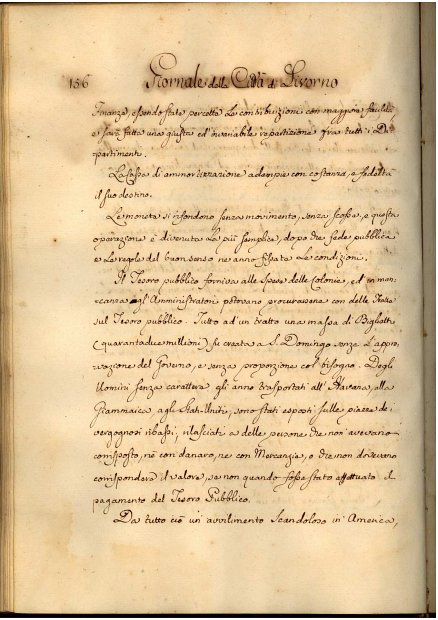 156 Giornale della Città di Livorno
Finanze, essendo state percette le contribuzioni con maggior facilità,
e sarà fatta una giusta ed invariabile repartizione fra tutti i Di-
partimenti.
La Cassa di ammortizzazione adempie con costanza, e fedeltà
il suo destino.
Le monete si rifondono senza movimento, senza scosse, e questa
operazione è divenuta la più semplice, dopo che fede pubblica
e le regole del buon senso ne anno fissate le condizioni.
Il Tesoro pubblico forniva alle spese delle Colonie, ed in man-
canza gl' Amministratori potevano procurarsene con delle Tratte
sul Tesoro pubblico. Tutto ad un tratto una massa di Biglietti
(quarantadue millioni) fu creata a S. Domingo senza l'appro-
vazione del Governo, e senza proporzione col bisogno. Degli
Uomini senza carattere gli anno trasportati all' Havana, alla
Giammaica, agli Stati-Uniti; sono stati esposti sulle piazze dei
vergognosi ribassi; rilasciati a delle persone che non avevano
corrisposto, nè con danaro, ne con Mercanzie, o che non dovevano
corrispondere il valore, se non quando fosse stato effettuato il
pagamento del Tesoro Pubblico.
Da tutto ciò un avvilimento Scandoloso in America,